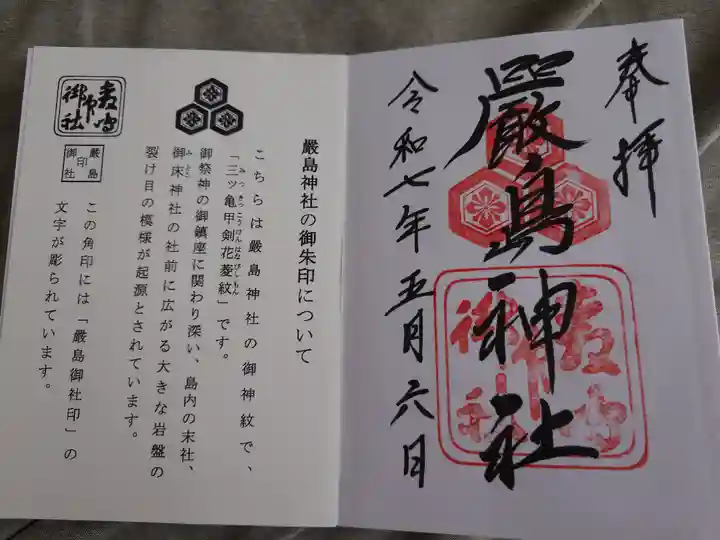 奉拝
嚴島神社
令和七年五月六日
厳島神社の御朱印について
こちらは厳島神社の御神紋で、
「三ッ亀甲剣花菱紋」です。
みつきっこうけんはなびしもん
御祭神の御鎮座に関わり深い、島内の末社、
御床神社の社前に広がる大きな岩盤の
み とこ
裂け目の模様が起源とされています。
厳島
御社
印
この角印には「嚴島御社印」の
文字が彫られています。